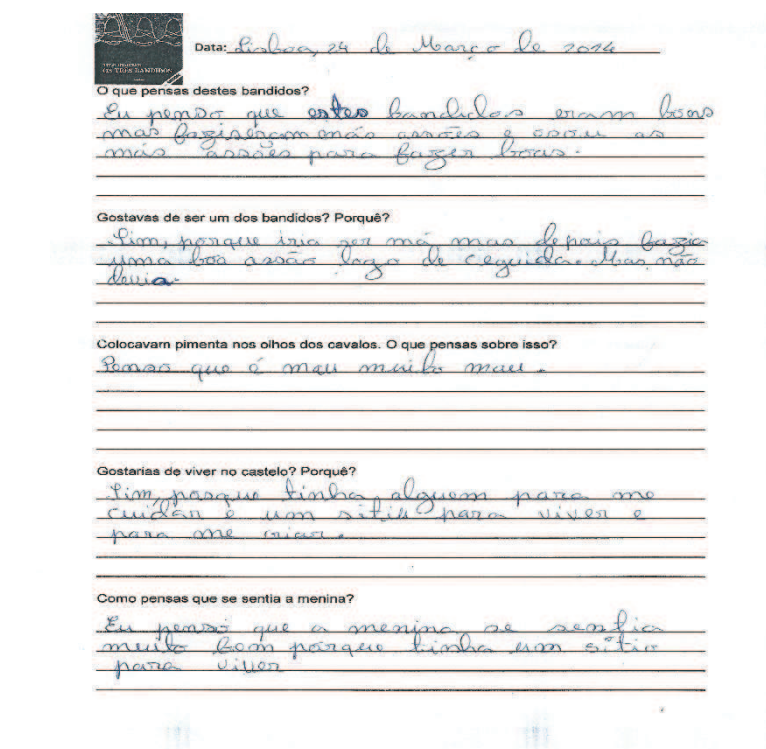 Data: Lisboa, 24 de Março de 2014
O que pensas destes bandidos?
Eu penso que estes bandidos eram bons
mas más assões e as
más assões para fazer boas.
Gostavas de ser um dos bandidos? Porquê?
Sim, porque iria ser má mas depois fazia
uma boa assão logo de ceguida. Mas não
devia.
Colocavam pimenta nos olhos dos cavalos. O que pensas sobre isso?
Penso que é mau muito mau.
Gostarias de viver no castelo? Porquê?
Sim, porque tinha alguem para me
cuidar e um sitiu para viver e
para me criar.
Como pensas que se sentia a menina?
Eu penso que a menina se sentia
muito bom porque tinha um sítio
para viver